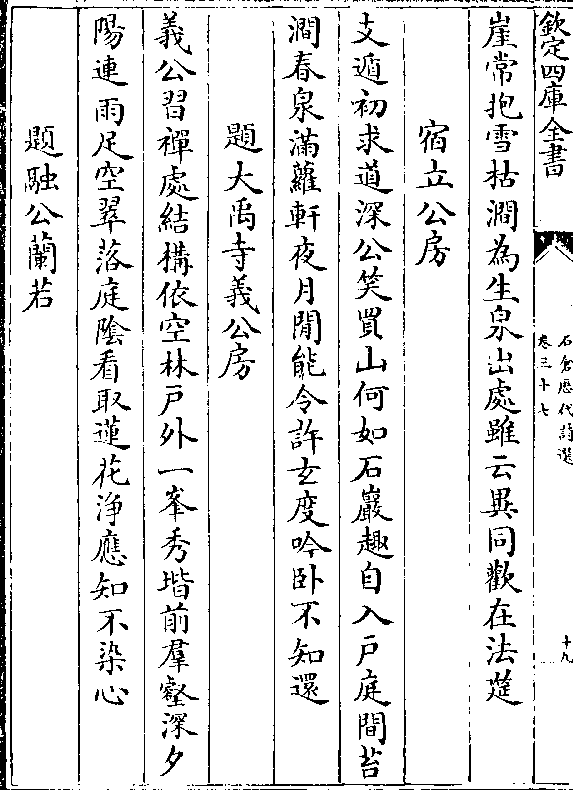 欽定四庫全書
石倉歷代詩選
卷三十七
十九
崖常抱雪枯澗為生泉出處雖云異同歡在法筵
宿立公房
支遁初求道深公笑買山何如石巖趣自入戶庭間苔
澗春泉滿蘿軒夜月閒能令許玄度吟卧不知還
題大禹寺義公房
義公習禪處結構依空林戶外一峯秀堦前羣壑深夕
陽連雨足空翠落庭陰看取蓮花淨應知不染心
題融公蘭若